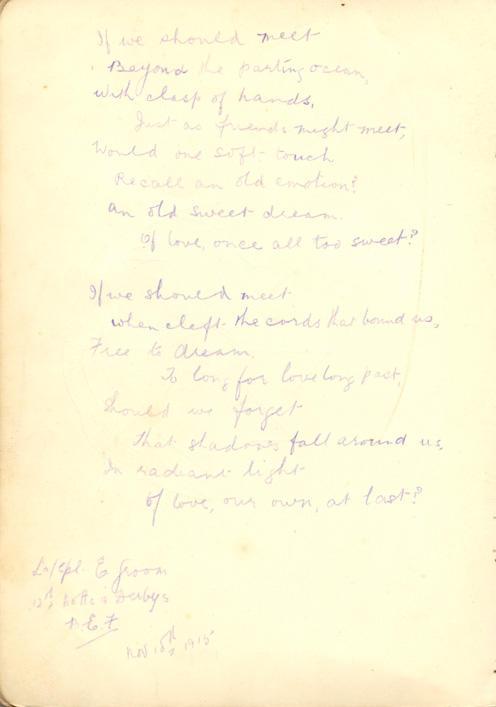 If we should meet
Beyond the parting ocean,
With clasp of hands,
Just as friends might meet,
Would one soft touch
Recall an old emotion?
An old sweet dream.
Of love, once all too sweet?
If we should meet
when cleft the cords that bound us,
Free to dream.
To long for love long past,
Should we forget
that shadows fall around us,
In radiant light
Of love, our own, at last?
L/Cpl. E Groom
12th Notts & Derbys
B.E.F
Nov 1915